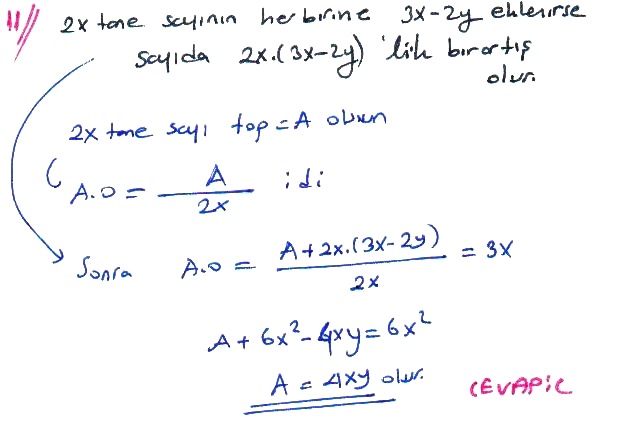 11// 2x tane sayının herbirine 3x-2y eklenirse
sayıda 2x.(3x-2y) 'lik birartış
olur.
2x tane sayı top = A olsun
A.O = A / 2x idi
Sonra A.O = A+2x.(3x-2y) / 2x = 3x
A + 6x² - 4xy = 6x²
A = 4xy olur.
CEVAP: C